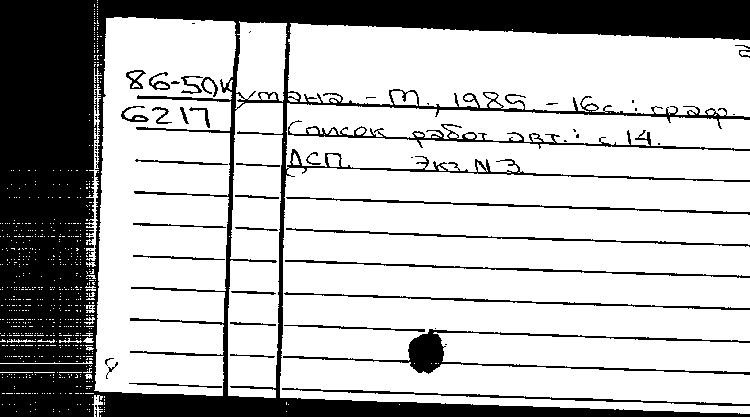 86-50к
6217
утана. - М., 1985. - 16с.: граф.
Список работ авт.: с. 14.
ДСП. Экз. N 3